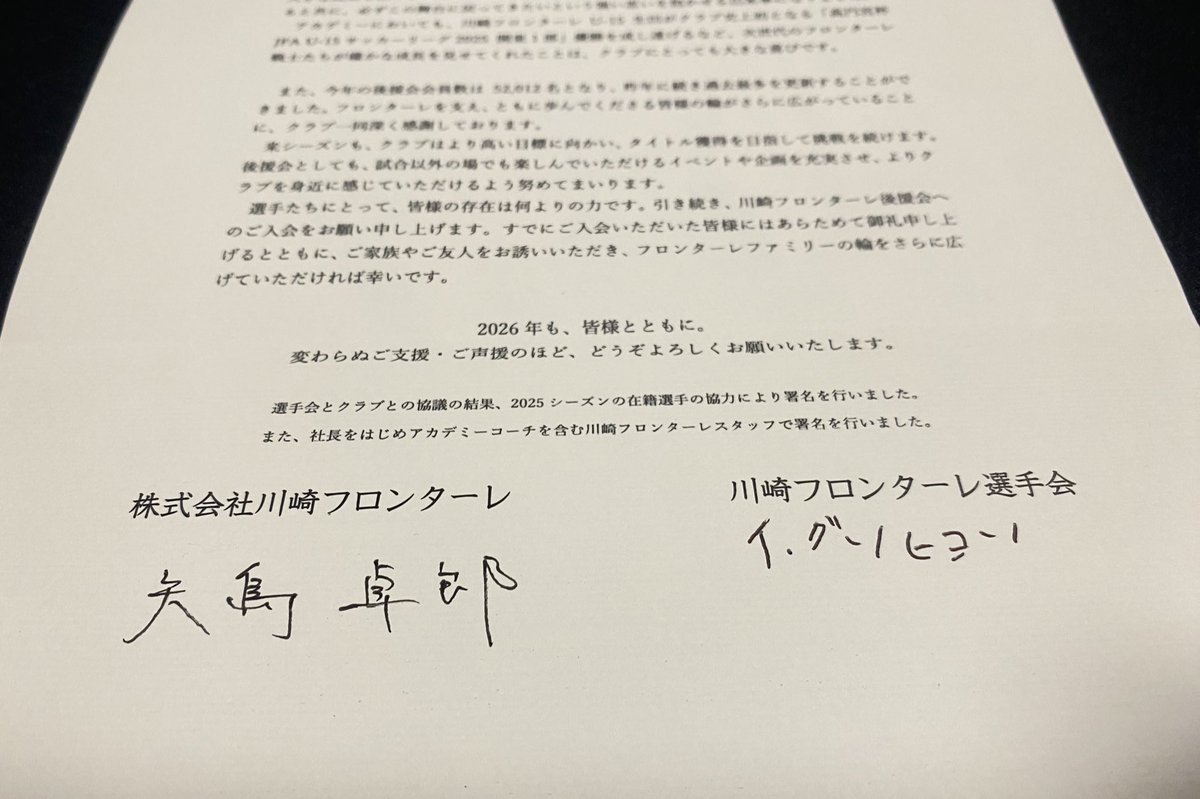 アカデミーにおいても、川崎フロンターレ U-15 生田がクラブ史上初となる「高円宮杯
JFA U-15 サッカーリーグ 2025 関東1部」優勝を成し遂げるなど、次世代のフロンターレ
戦士たちが確かな成長を見せてくれたことは、クラブにとっても大きな喜びです。
また、今年の後援会会員数は 52,012 名となり、昨年に続き過去最多を更新することがで
きました。フロンターレを支え、ともに歩んでくださる皆様の輪がさらに広がっていること
に、クラブ一同深く感謝しております。
来シーズンも、クラブはより高い目標に向かい、タイトル獲得を目指して挑戦を続けます。
後援会としても、試合以外の場でも楽しんでいただけるイベントや企画を充実させ、よりク
ラブを身近に感じていただけるよう努めてまいります。
選手たちにとって、皆様の存在は何よりの力です。引き続き、川崎フロンターレ後援会へ
のご入会をお願い申し上げます。すでにご入会いただいた皆様にはあらためて御礼申し上
げるとともに、ご家族やご友人をお誘いいただき、フロンターレファミリーの輪をさらに広
げていただければ幸いです。
2026 年も、皆様とともに。
変わらぬご支援・ご声援のほど、どうぞよろしくお願いいたします。
選手会とクラブとの協議の結果、2025 シーズンの在籍選手の協力により署名を行いました。
また、社長をはじめアカデミーコーチを含む川崎フロンターレスタッフで署名を行いました。
株式会社川崎フロンターレ
川崎フロンターレ選手会
矢島 卓郎
イ・グンヒョン